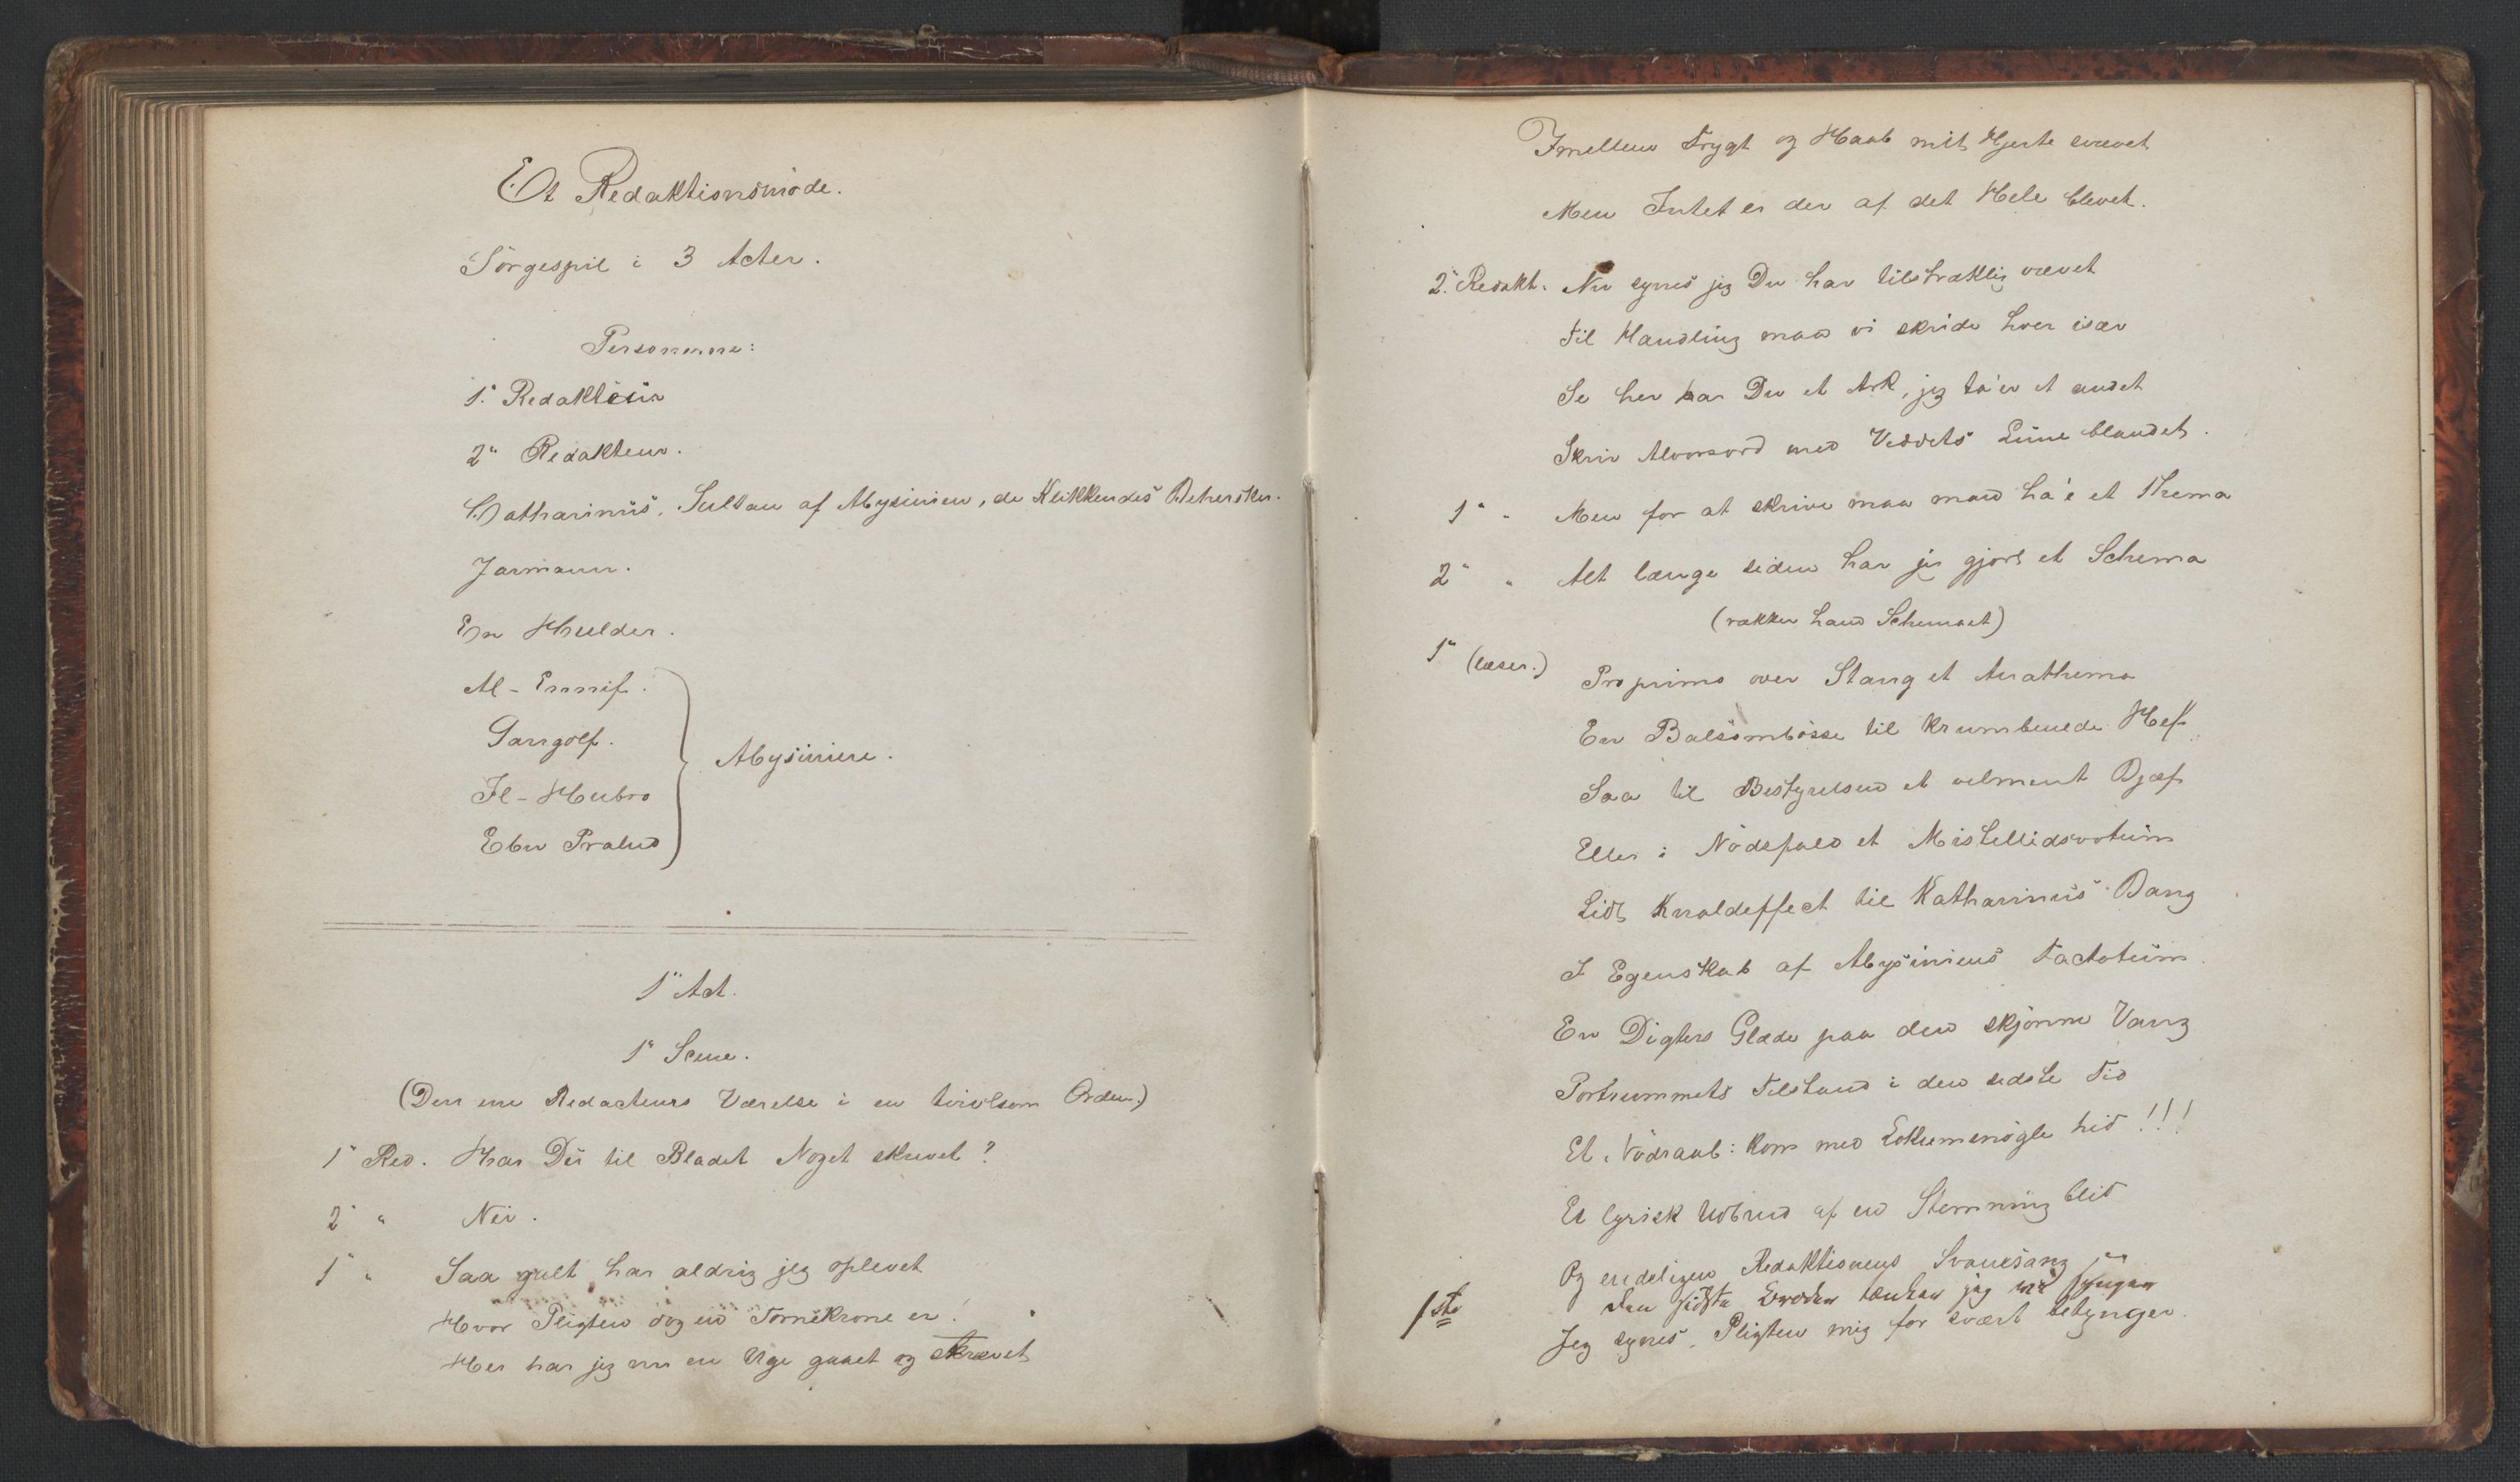 Et Redaktionsmöde.
Sörgespil i 3 Acter.
Personerne:
1ˢ Redakteur
2ⁿ Redakteur.
Catharinus, Sultan af Abysinien, de Klikkendes Behersker.
Jarmann.
En Hulder.
Al-Ennif.
Gangolf.
Il-Hubro
Ebn Pralud
Abysiniere.
1ˢ Act.
1ˢ Scene.
(Den ene Redacteurs Værelse i en tvivlsom Orden.)
1ˢ Red. Har Du til Bladet Noget skrevet?
2ⁿ " Nei.
1ˢ " Saa galt har aldrig jeg oplevet
Hvor Pligten dog en Tornekrone er!
Her har jeg nu en Uge gaaet og strævet
Imellem Frygt og Haab mit Hjerte svævet
Men Intet er der af det Hele blevet.
2ⁿ Redakt. Nu synes jeg Du har tilstræklig vævet
Til Handling maa vi skride hver især
Se her har Du et Ark, jeg ta'er et andet
Skriv Alvorsord med Viddets Lune blandet.
1ˢ " Men for at skrive maa man ha'e et Thema
2ⁿ " Alt længe siden har jeg gjort et Schema
(rækker ham Schemaet)
1ˢ (læser.) Pro primo over Stang et Anathema
En Balsombösse til krumbenede Hef
Saa til Bestyrelsen et velment Bjæf
Eller i Nödsfald et Mistillidsvotum
Lidt Knaldeffect til Katharinus Bang
I Egenskab af Abysiniens Factotum.
En Digters Glæde paa den skjönne Vang
Portrummets Tilstand i den sidste Tid
Et Nödraab: Kom med Lokumsnögle hid!!!
Et lyrisk Udbrud af en Stemning blid
Og endeligen Redaktionens Svanesang
1ste Den sidste tænker jeg vi synger
Jeg synes, Pligten mig for svært betynger.